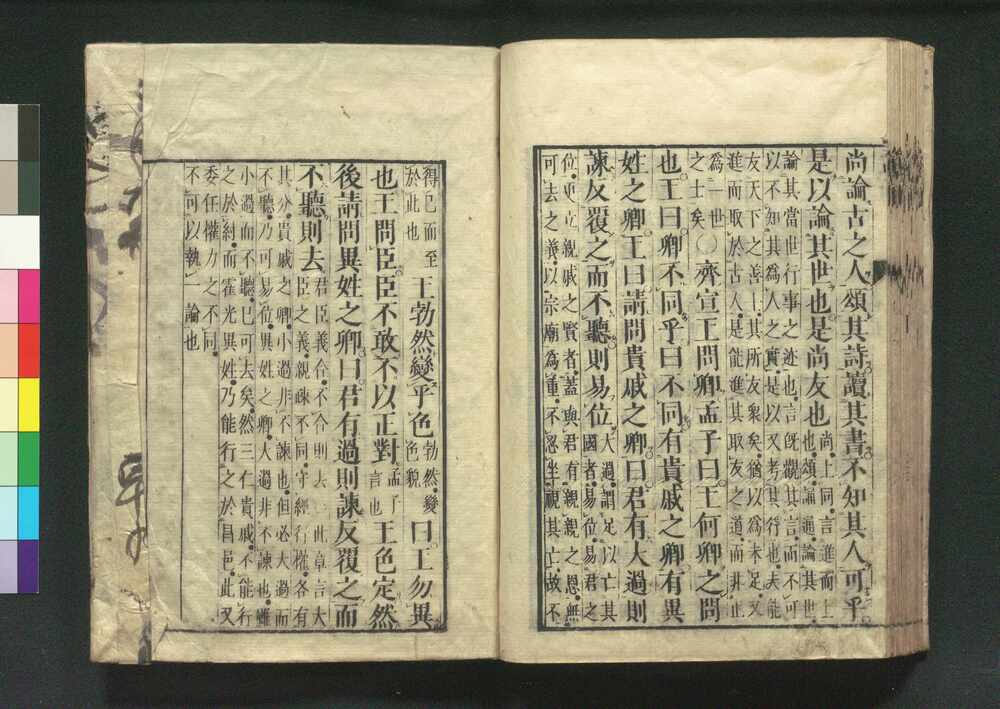 尚論古之人頌其詩讀其書不知其人可乎
是以論其世也是尚友也尚上同言進而上也頌誦通論其世
論其當世行事之迹也言旣觀其言而不可
以不知其為人之實是以又考其行也夫能
友天下之善士其所友衆矣猶以為未足又
進而取於古人是能進其取友之道而非止
為一世之士矣○齊宣王問卿孟子曰王何卿之問
也王曰卿不同乎曰不同有貴戚之卿有異
姓之卿王曰請問貴戚之卿曰君有大過則
諫反覆之而不聽則易位大過謂足以亡其國者易位易君之
位更立親戚之賢者蓋與君有親親之恩無
可去之義以宗廟為重不忍坐視其亡故不
得已而至於此也王勃然變乎色勃然變色貌曰王勿異
也王問臣臣不敢不以正對孟子言也王色定然
後請問異姓之卿曰君有過則諫反覆之而
不聽則去君臣義合不合則去○此章言大臣之義親疎不同守經行權各有
其分貴戚之卿小過非不諫也但必大過而
不聽乃可易位異姓之卿大過非不諫也雖
小過而不聽已可去矣然三仁貴戚不能行
之於紂而霍光異姓乃能行之於昌邑此又
委任權力之不同
不可以執一論也